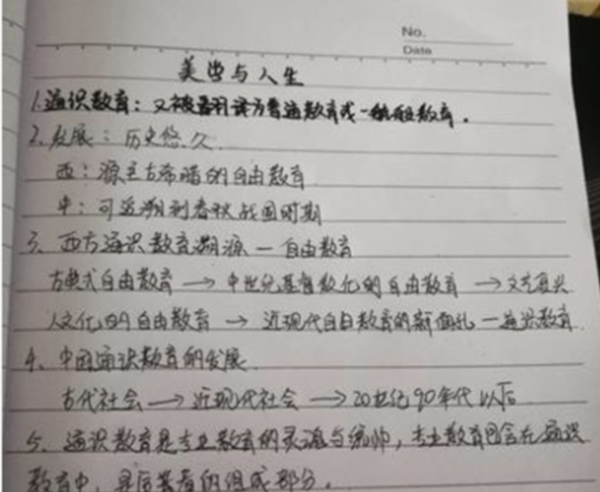 No.
Date
美学与人生
1.通识教育：又被翻译为普通教育或一般教育。
2、发展：历史悠久
西：源至古希腊的自由教育
中：可追溯到春秋战国时期
3、西方通识教育溯源—自由教育
古典式自由教育→中世纪基督教化的自由教育→文艺复兴
人文化的自由教育→近现代自由教育的新面孔—通识教育
4、中国通识教育的发展
古代社会→近现代社会→20世纪90年代以后
5、通识教育是专业教育的灵魂与统帅，专业教育包含在通识
教育中，是后者的组成部分。